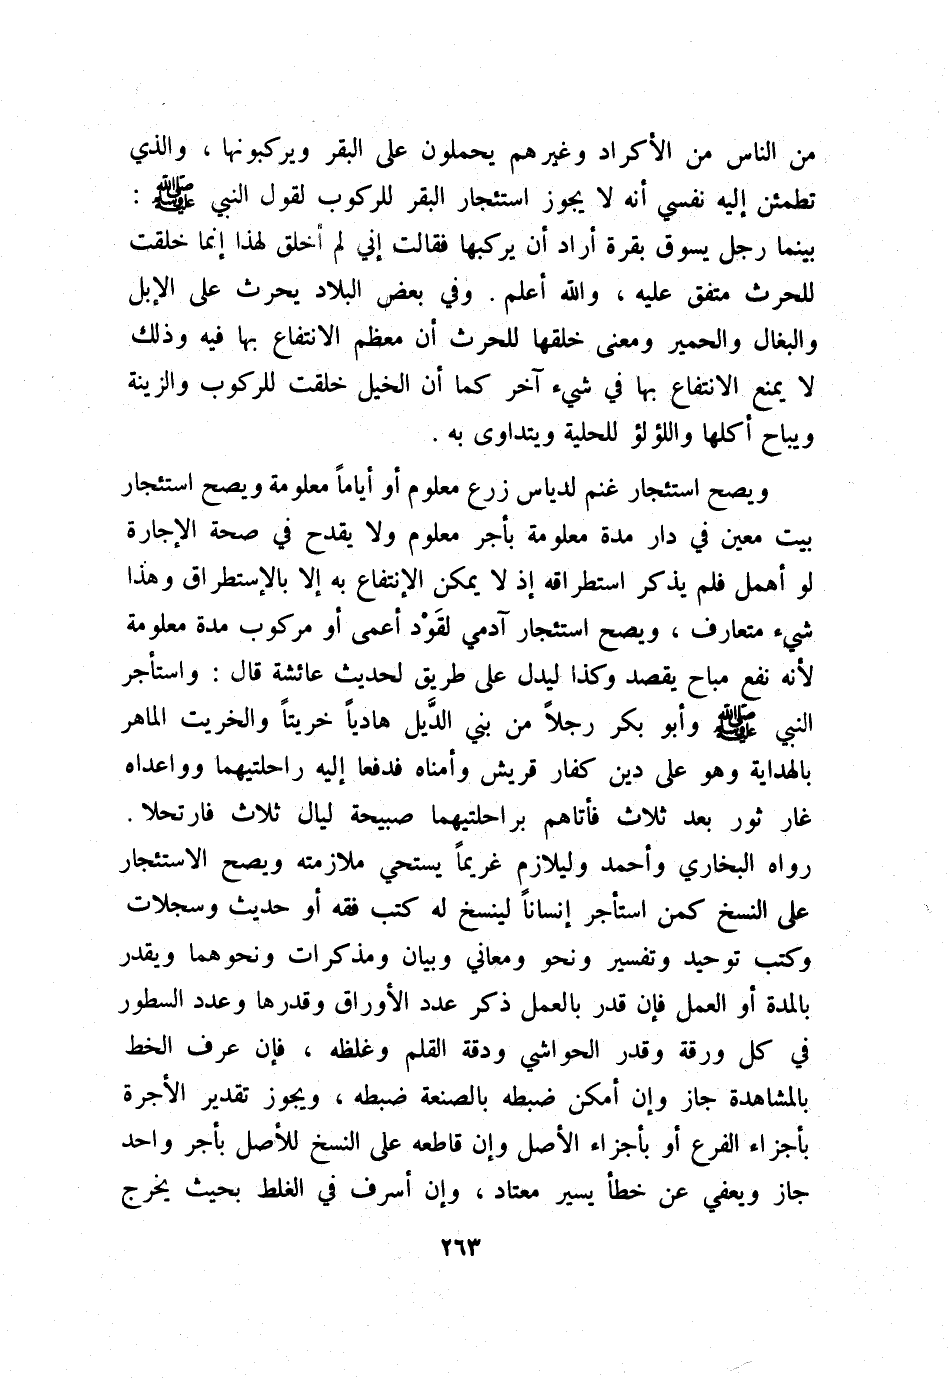 من الناس من الأكراد وغيرهم يحملون على البقر ويركبونها ، والذي
تطمئن إليه نفسي أنه لا يجوز استئجار البقر للركوب لقول النبي ﷺ :
بينما رجل يسوق بقرة أراد أن يركبها فقالت إني لم أخلق لهذا إنما خلقت
للحرث متفق عليه ، والله أعلم . وفي بعض البلاد يحرث على الإبل
والبغال والحمير ومعنى خلقها للحرث أن معظم الانتفاع بها فيه وذلك
لا يمنع الانتفاع بها في شيء آخر كما أن الخيل خلقت للركوب والزينة
ويباح أكلها واللؤلؤ للحلية ويتداوى به .
ويصح استئجار غنم لدياس زرع معلوم أو أياماً معلومة ويصح استئجار
بيت معين في دار مدة معلومة بأجر معلوم ولا يقدح في صحة الإجارة
لو أهمل فلم يذكر استطراقه إذ لا يمكن الإنتفاع به إلا بالإستطراق وهذا
شيء متعارف ، ويصح استئجار آدمي لقَوْد أعمى أو مركوب مدة معلومة
لأنه نفع مباح يقصد وكذا ليدل على طريق لحديث عائشة قال : واستأجر
النبي ﷺ وأبو بكر رجلاً من بني الدَّيل هادياً خريتاً والخريت الماهر
بالهداية وهو على دين كفار قريش وأمناه فدفعا إليه راحلتيهما وواعداه
غار ثور بعد ثلاث فأتاهم براحلتيهما صبيحة ليال ثلاث فارتحلا .
رواه البخاري وأحمد وليلازم غريماً يستحي ملازمته ويصح الاستئجار
على النسخ كمن استأجر إنساناً لينسخ له كتب فقه أو حديث وسجلات
وكتب توحيد وتفسير ونحو ومعاني وبيان ومذكرات ونحوهما ويقدر
بالمدة أو العمل فإن قدر بالعمل ذكر عدد الأوراق وقدرها وعدد السطور
في كل ورقة وقدر الحواشي ودقة القلم وغلظه ، فإن عرف الخط
بالمشاهدة جاز وإن أمكن ضبطه بالصنعة ضبطه ، ويجوز تقدير الأجرة
بأجزاء الفرع أو بأجزاء الأصل وإن قاطعه على النسخ للأصل بأجر واحد
جاز ويعفي عن خطأ يسير معتاد ، وإن أسرف في الغلط بحيث يخرج
٢٦٣